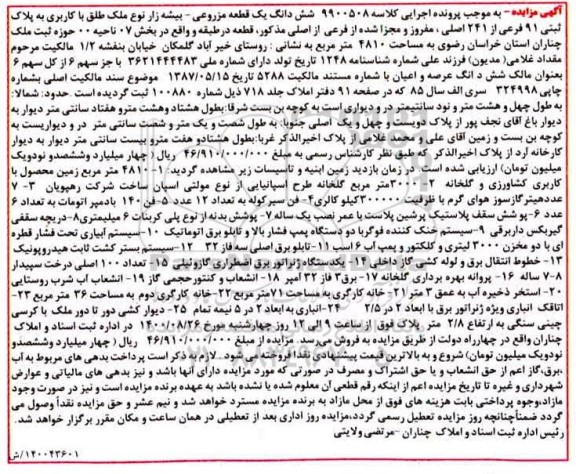 آگهی مزایده - به موجب پرونده اجرایی کلاسه ۹۹۰۰۵۰۸ شش دانگ یک قطعه مزروعی - بیشه زار نوع ملک طلق با کاربری به پلاک
ثبتی ۹۱ فرعی از ۲۴۱ اصلی ، مفروز و مجزا شده از فرعی از اصلی مذکور، قطعه درطبقه و واقع در بخش ۰۷ ناحیه ۰۰ حوزه ثبت ملک
چناران استان خراسان رضوی به مساحت ۴۸۱۰ متر مربع به نشانی : روستای خیر آباد گلمکان خیابان بنفشه ۱/۲ مالکیت مرحوم
مقداد غلامی (مدیون) فرزند علی شماره شناسنامه ۱۲۴۸ تاریخ تولد دارای شماره ملی ۳۶۲۱۴۴۴۴۸۳ با جز سهم ۶ از کل سهم ۶
بعنوان مالک شش د انگ عرصه و اعیان با شماره مستند مالکیت ۵۲۸۸ تاریخ ۱۳۸۷/۰۵/۱۵ موضوع سند مالکیت اصلی بشماره
چاپی ۳۲۴۹۹۸ سری الف سال ۸۵ که در صفحه ۹۱ دفتر املاک جلد ۷۱۸ ذیل شماره ۱۰۰۸۸۰ ثبت گردیده است .حدود: شمالا:
به طول چهل و هشت متر و نود سانتیمتر در و دیواری است به کوچه بن بست شرقا:بطول هشتاد وهشت مترو هفتاد سانتی متر دیوار به
دیوار باغ آقای نجف پور از پلاک دویست و چهل و یک اصلی جنوبا: به طول شصت و یک متر و شصت سانتی متر در و دیواریست به
کوچه بن بست و زمین آقای علی و محمد غلامی از پلاک اخیرالذکر غربا:بطول هشتادو هفت مترو بیست سانتی متر دیوار به دیوار
کارخانه آرد از پلاک اخیرالذکر که طبق نظر کارشناس رسمی به مبلغ ۴۶/۹۱۰/۰۰۰/۰۰۰ ریال ( چهار میلیارد وششصدو نودویک
میلیون تومان) ارزیابی شده است. در زمان بازدید زمین ابنیه و تاسیسات زیر مشاهده گردید: ۱- ۴۸۱۰ متر مربع زمین محصول با
کاربری کشاورزی و گلخانه ۲-۳۰۰۰متر مربع گلخانه طرح اسپانیایی از نوع مولتی اسپان ساخت شرکت رهپویان ۳- ۷
عددهیترگازسوز هوای گرم با ظرفیت ۳۰۰۰۰۰کیلو کالری۴- فن سیرکوله به تعداد ۱۲ عدد ۵- فن ۱۴۰ بادمپر اتومات به تعداد ۶
عدد ۶- پو شش سقف پلاستیک پرشین پلاست با عمر نصب یک ساله ۷- پوشش بدنه از نوع پلی کربنات ۶ میلیمتری۸-دریچه سقفی
گیربکس داربرقی ۹-سیستم خنک کننده فوگربا دو دستگاه پمپ فشار بالا و تابلو برق اتوماتیک ۱۰-سیستم آبیاری تحت فشار قطره
ای با دو مخزن ۳۰۰۰ لیتری و کلکتور و پمپ آب ۶ اسب ۱۱-تابلو برق اصلی سه فاز ۳۲ ۱۲-سیستم بستر کشت ثابت هیدروپونیک
۱۳- خطوط انتقال برق و لوله کشی گاز داخلی ۱۴- یکدستگاه ژنراتور برق اضطراری گازوئیلی ۱۵- تعداد ۱۰۰ اصلی درخت سپیدار
۷-۸ ساله ۱۶- پروانه بهره برداری گلخانه ۱۷-برق۳ فاز ۳۲ آمپر ۱۸- انشعاب و کنتورحجمی گاز ۱۹- انشعاب آب شرب روستایی
۲۰- استخر ذخیره آب به عمق ۳ متر ۲۱-خانه کارگری به مساحت ۷۱متر مربع ۲۲-خانه کارگری دوم به مساحت ۳۶ متر مربع ۲۳-
اتاقک انباری ویژه ژنراتور برق با ابعاد ۲ در ۲/۵ ۲۴-انباری به ابعاد ۲ در ۵ نیمه تمام ۲۵- دیوار کشی دور تا دور ملک با کرسی
چینی سنگی به ارتفاع ۲/۸ متر پلاک فوق از ساعت ۹ الی ۱۲ روز چهارشنبه مورخ ۱۴۰۰/۰۸/۲۶ در اداره ثبت اسناد و املاک
چناران واقع در چهارراه دولت از طریق مزایده به فروش می‌رسد. مزایده از مبلغ ۴۶/۹۱۰/۰۰۰/۰۰۰ ریال ( چهار میلیارد وششصدو
نودویک میلیون تومان) شروع و به بالاترین قیمت پیشنهادی نقدا فروخته می شود . لازم ذکر است پرداخت بدهی های مربوط به آب
،برق،گاز اعم از حق انشعاب و یا حق اشتراک و مصرف در صورتی که مورد مزایده دارای آنها باشد و نیز بدهی های مالیاتی و عوارض
شهرداری و غیره تا تاریخ مزایده اعم از اینکه رقم قطعی آن معلوم شده یا نشده باشد به عهده برنده مزایده است و نیز در صورت وجود
مازاد،وجوه پرداختی بابت هزینه های فوق از محل مازاد به برنده مزایده مسترد خواهد شد و نیم عشر و حق مزایده نقداً وصول می
گردد ضمناًچنانچه روز مزایده تعطیل رسمی گردد،مزایده روز اداری بعد از تعطیلی در همان ساعت و مکان مقرر برگزار خواهد شد.
رئیس اداره ثبت اسناد و املاک چناران -مرتضی ولایتی
۱۴۰۰۴۳۶۰۱/ش